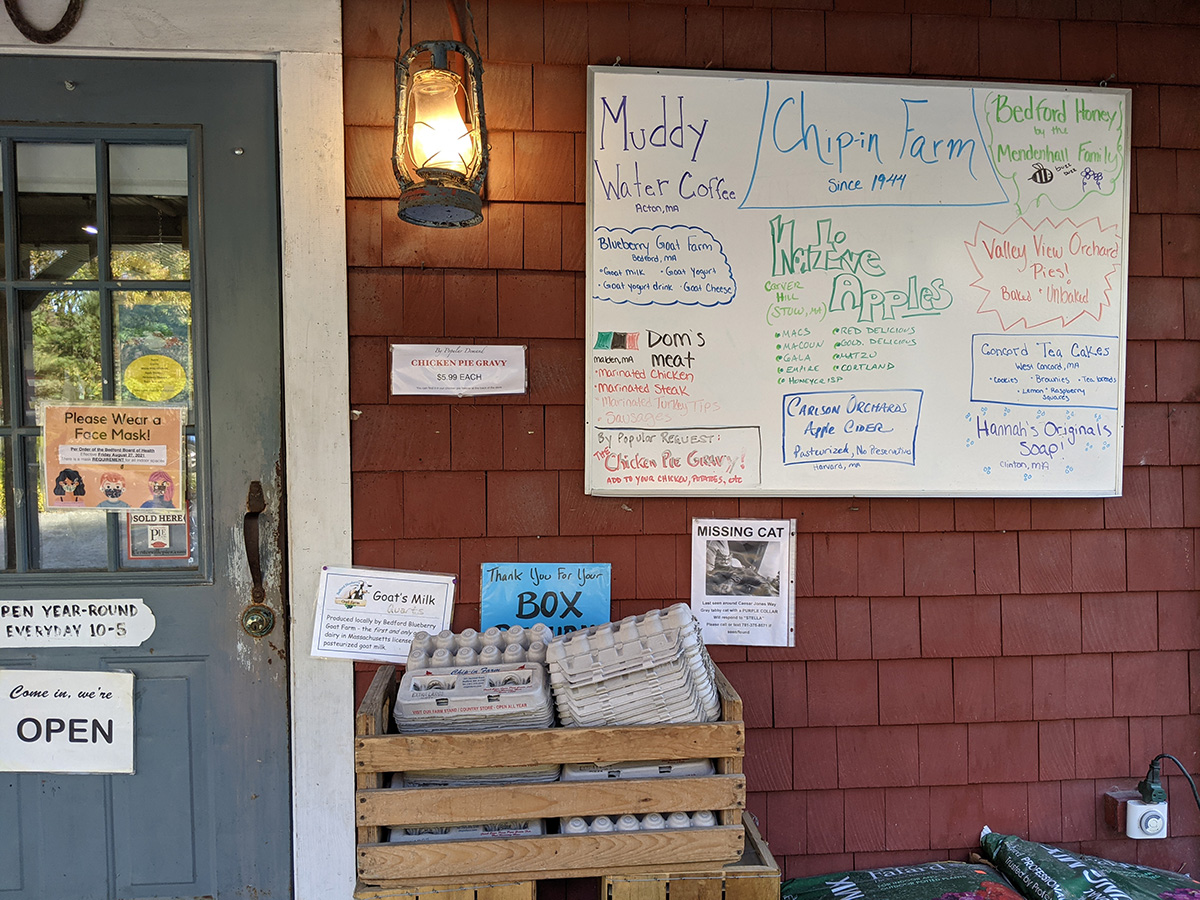 Muddy
Water Coffee
Acton, MA
Chip-in Farm
Since 1944
Bedford Honey
by the
Mendenhall Family
buzz
buzz
Blueberry Goat Farm
Bedford, MA
• Goat milk • Goat Yogurt
• Goat yogurt drink • Goat Cheese
Native
Apples
Carver
Hill
(Stow, MA)
• Macs
• Macoun
• Gala
• Empire
• Honeycrisp
• Red Delicious
• Gold. Delicious
• Mutzu
• Cortland
Valley View Orchard
Pies!
Baked • Unbaked
Dom's
Malden, MA meat
• Marinated Chicken
• Marinated Steak
• Marinated Turkey Tips
• Sausages
By Popular Request:
The Chicken Pie Gravy!
Add to your chicken, potatoes, etc
Carlson Orchards
Apple Cider
Pasteurized, No Preservative
Harvard, MA
Concord Tea Cakes
West Concord, MA
• Cookies • Brownies • Tea breads
• Lemon • Raspberry
Squares
Hannah's Originals
Soap!
Clinton, MA
By Popular Demand
CHICKEN PIE GRAVY
$5.99 EACH
Please Wear a
Face Mask!
Per Order of the Bedford Board of Health
Effective Friday August 27, 2021
There is a mask REQUIREMENT for all indoor spaces
SOLD HERE
PIE
OPEN YEAR-ROUND
EVERYDAY 10-5
Come in, we're
OPEN
Goat's Milk
Quarts
Produced locally by Bedford Blueberry
Goat Farm - the first and only goat
dairy in Massachusetts licensed
pasteurized goat milk.
Thank You For Your
BOX
MISSING CAT
Last seen around Caesar Jones Way
Grey tabby cat with a PURPLE COLLAR
Will respond to "STELLA"
Please call or text
seen/found
Chip-in Farm
VISIT OUR FARM STAND / COUNTRY STORE - OPEN ALL YEAR